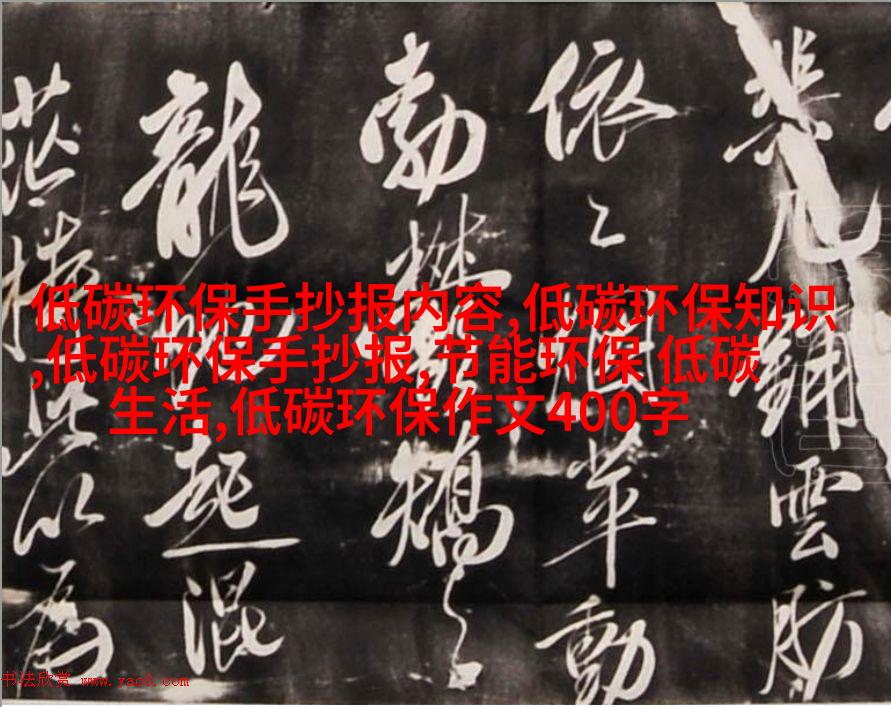 低碳环保手抄报内容,低碳环保知识
,低碳环保手抄报,节能环保 低碳
生活,低碳环保作文400字
几鋪雲肪
依動
勃矯
龍起混
茫以為
书法欣赏 www.yac8.com